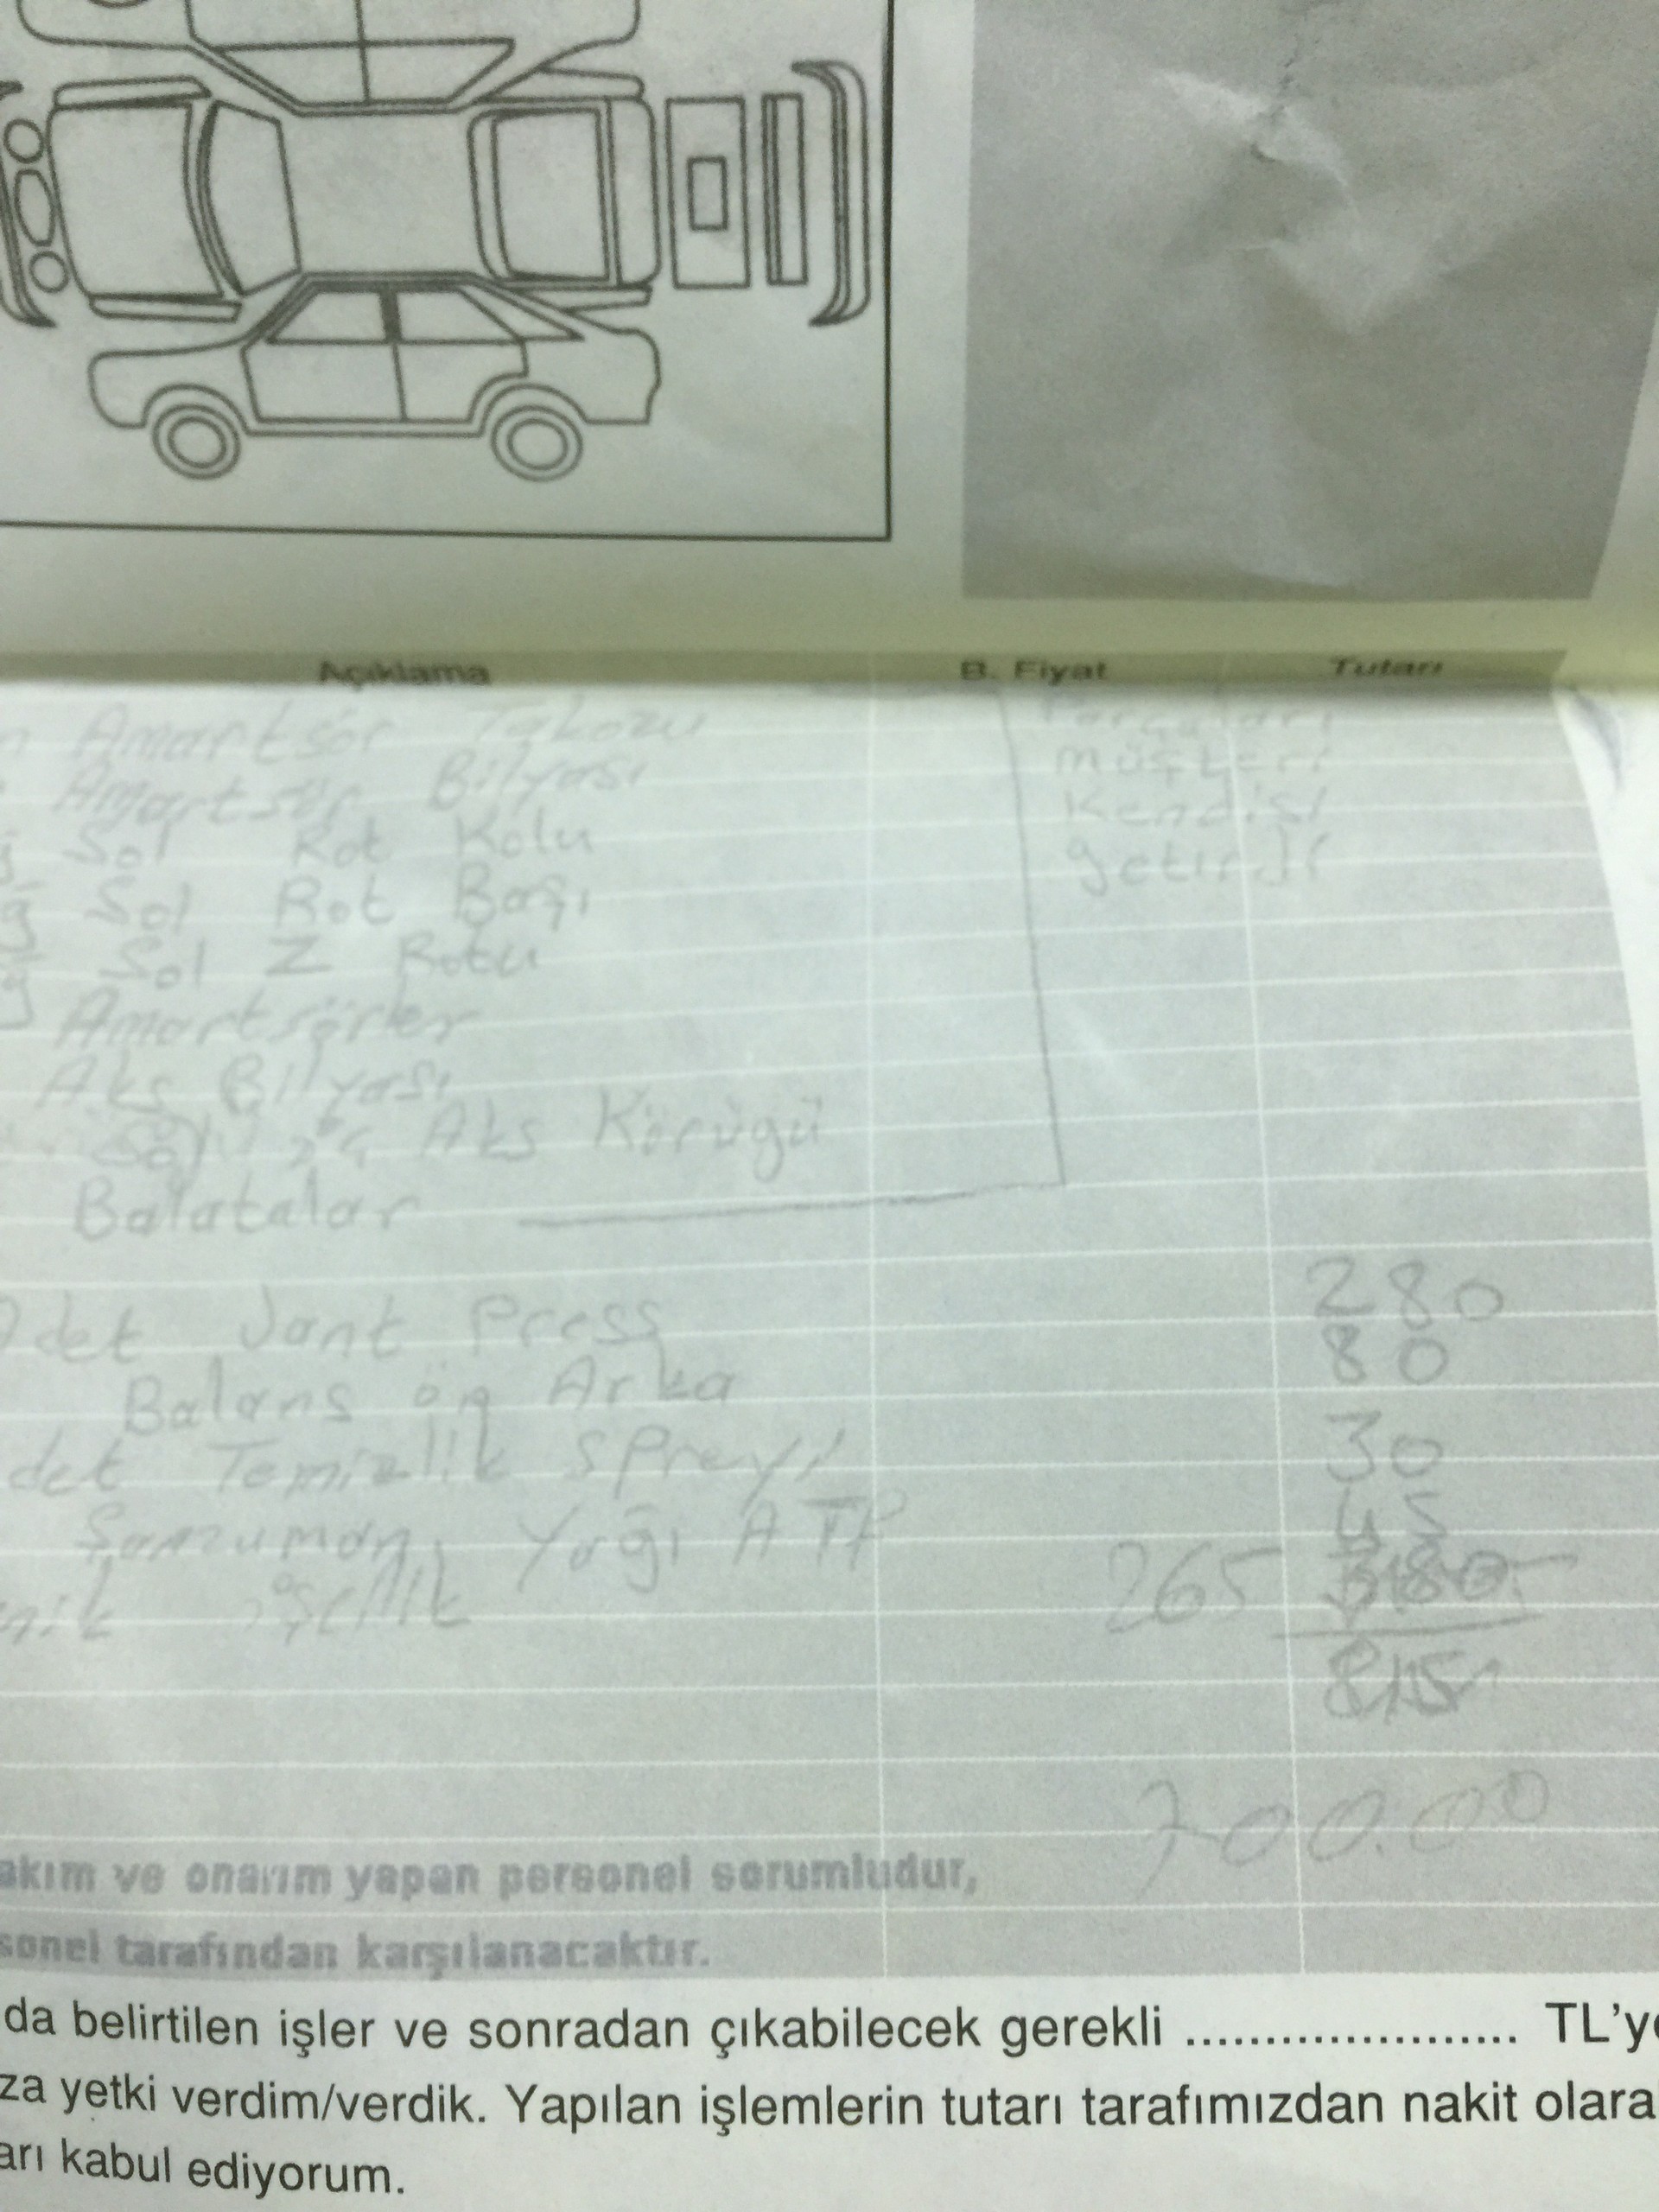 Açıklama B. Fiyat Tutarı
Amartsör Takozu Parçaları
Amartsör Bilyası müşteri
Sol Rot Kolu Kendisi
Sol Rot Başı getirdi
Sol Z Rotu
Amartsörler
Aks Bilyası
Aks Körüğü
Balatalar
Adet Jant Press 280
Balans ön Arka 80
det Temizlik Spreyi 30
Şanzuman Yağı ATF 45
nik işçilik 265 380
815
700.00
akım ve onarım yapan personel sorumludur,
sonel tarafından karşılanacaktır.
da belirtilen işler ve sonradan çıkabilecek gerekli ..................... TL'ye
za yetki verdim/verdik. Yapılan işlemlerin tutarı tarafımızdan nakit olara
arı kabul ediyorum.